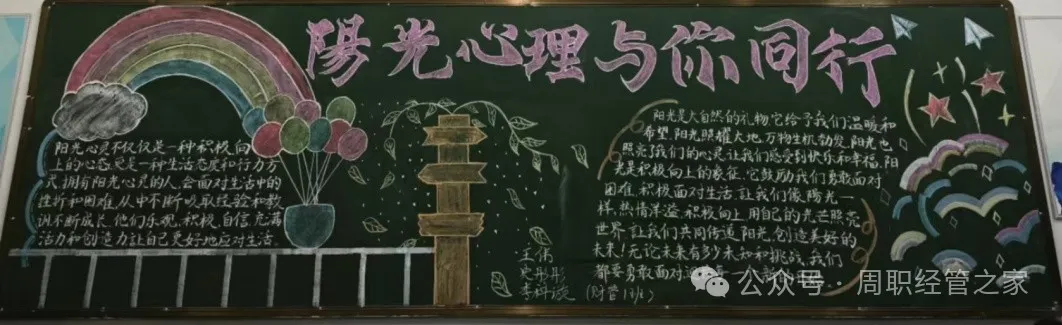 陽光心理与你同行
阳光心灵不仅仅是一种积极向
上的心态,更是一种生活态度和行为方
式,拥有阳光心灵的人,会面对生活中的
挫折和困难,从中不断吸取经验和教
训,不断成长,他们乐观,积极,自信,充满
活力和创造力,让自己更好地应对生活
阳光是大自然的礼物,它给予我们温暖和
希望,阳光照耀大地,万物生机勃发,阳光也
照亮了我们的心灵,让我们感受到快乐和幸福,阳
光是积极向上的象征,它鼓励我们勇敢面对
困难,积极面对生活,让我们像陽光一
样,热情洋溢,积极向上,用自己的光芒照亮
世界,让我们共同传递阳光,创造美好的
未来!无论未来有多少未知和挑战,我们
都要勇敢面对
王伟
史彤彤
李
公众号·周职经管之家